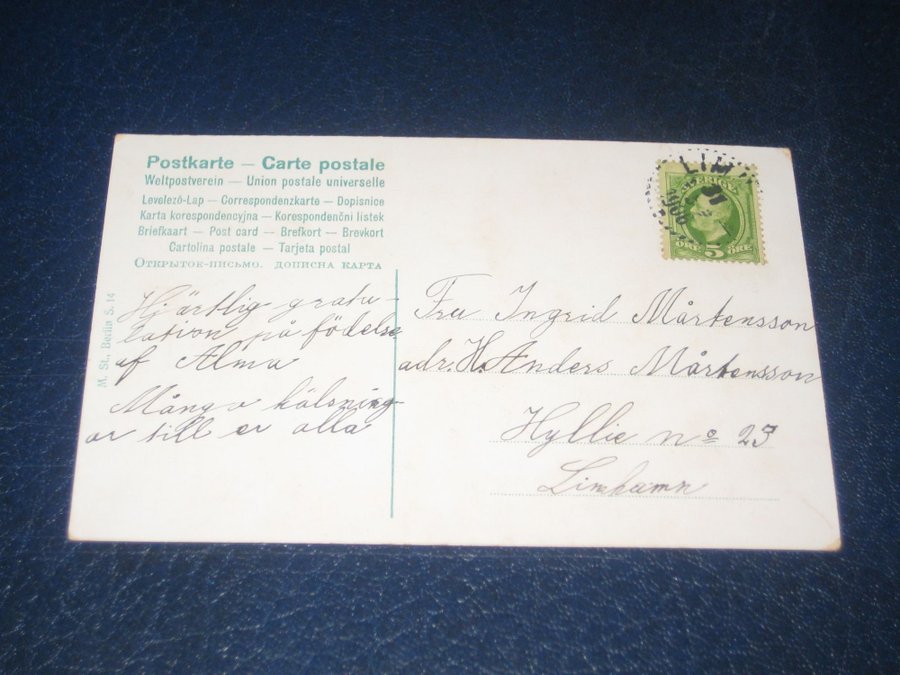 Postkarte — Carte postale
Weltpostverein — Union postale universelle
Levelező-Lap — Correspondenzkarte — Dopisnice
Karta korespondencyjna — Korespondenční listek
Briefkaart — Post card — Brefkort — Brevkort
Cartolina postale — Tarjeta postal
Открытое-письмо. дописна карта
M. St., Berlin S. 14
Hjärtlig gratu-
lation på födelse
af Alma
Många hälsning-
ar till er alla
LIM
SVERIGE
ÖRE 5 ÖRE
Fru Ingrid Mårtensson
adr. H. Anders Mårtensson
Hyllie nº 25
Limhamn